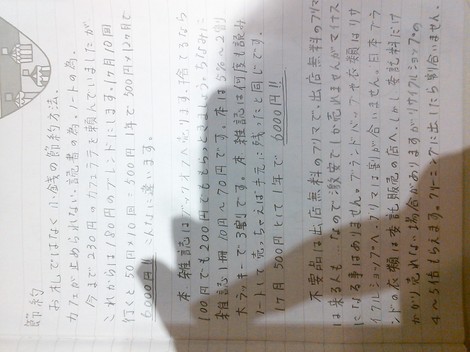 節約
お札ではなく小銭の節約方法。
カフェが止められない読者の為。ノートの為。
今まで230円のカフェラテを頼んでいましたが
これからは180円のブレンドにします。1ヶ月10回
行くと50円×10回で500円 1年で500円×12ヵ月で
6000円!! こんなに違います。
本、雑誌はブックオフへ売ります。捨てるなら
100円でも200円でももらっときましょう。ちなみに
雑誌1冊10円〜70円です。本は5%〜2割
大ラッキーで3割です。本、雑誌は何度も読み
ノートして売っちゃえば手元に残ったと同じです。
1ヶ月500円として1年で 6000円!!
不要品は出店無料のフリマで。出店無料のフリマ
は来る人も…なので激安でしか売れませんがマイナス
になる事はありません。ブランドバッグや衣類はリサ
イクルショップへ。フリマには割が合いません。日本ブラ
ンドの衣類は委託販売の店へ。しかし委託料だけ
かかり売れない場合がありますがリサイクルショップの
4〜5倍もらえます。クリーニングに出したら割合いません。